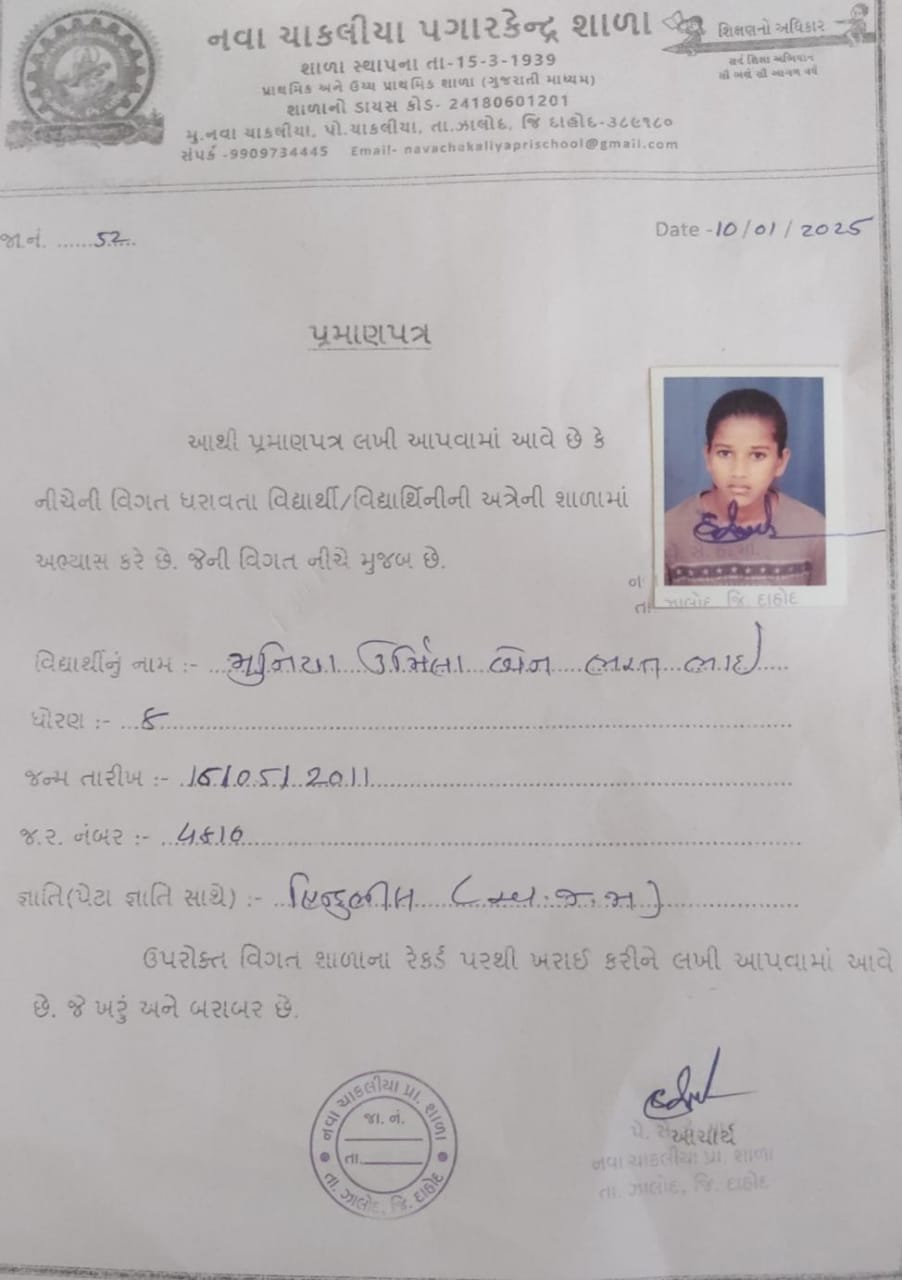 નવા ચાકલીયા પગારકેન્દ્ર શાળા
શિક્ષણનો અધિકાર
શાળા સ્થાપના તા-15-3-1939
સર્વ શિક્ષા અભિયાન
પ્રાથમિક અને ઉચ્ચ પ્રાથમિક શાળા (ગુજરાતી માધ્યમ)
સૌ ભણે સૌ આગળ વધે
શાળાનો ડાયસ કોડ- 24180601201
મુ.નવા ચાકલીયા, પો.ચાકલીયા, તા.ઝાલોદ, જિ દાહોદ-૩૮૯૧૮૦
સંપર્ક -9909734445 Email- navachakaliyaprischool@gmail.com
જા.નં. ......52..
Date -10/01/2025
પ્રમાણપત્ર
આથી પ્રમાણપત્ર લખી આપવામાં આવે છે કે
નીચેની વિગત ધરાવતા વિદ્યાર્થી/વિદ્યાર્થિનીની અત્રેની શાળામાં
અભ્યાસ કરે છે. જેની વિગત નીચે મુજબ છે.
તા. ઝાલોદ, જિ. દાહોદ
વિદ્યાર્થીનું નામ :- મુનિયા ઉર્મિલા બેન ભરત ભાઈ
ધોરણ :- ૮
જન્મ તારીખ :- 15/05/2011
જ.ર. નંબર :- ૫૮૧૦
જ્ઞાતિ(પેટા જ્ઞાતિ સાથે) :- હિન્દુભીલ (અ.જ.જા)
ઉપરોક્ત વિગત શાળાના રેકર્ડ પરથી ખરાઈ કરીને લખી આપવામાં આવે
છે. જે ખરું અને બરાબર છે.
નવા ચાકલીયા પ્રા. શાળા
જા. નં.
તા.
તા. ઝાલોદ, જિ. દાહોદ
આચાર્ય
નવા ચાકલીયા પ્રા. શાળા
તા. ઝાલોદ, જિ. દાહોદ